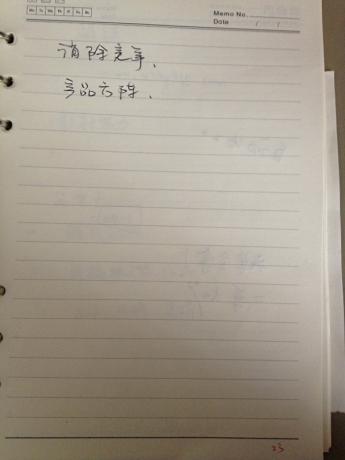 Memo No.
Date / /
消除竞争、
产品方阵、
23